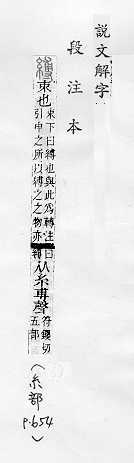 說文解字
段注本
縛
束也
束下曰縛也與此爲轉注
引申之所以縛之之物亦
曰
縛
从糸尃聲
符钁切
五部
(糸部
p.654)